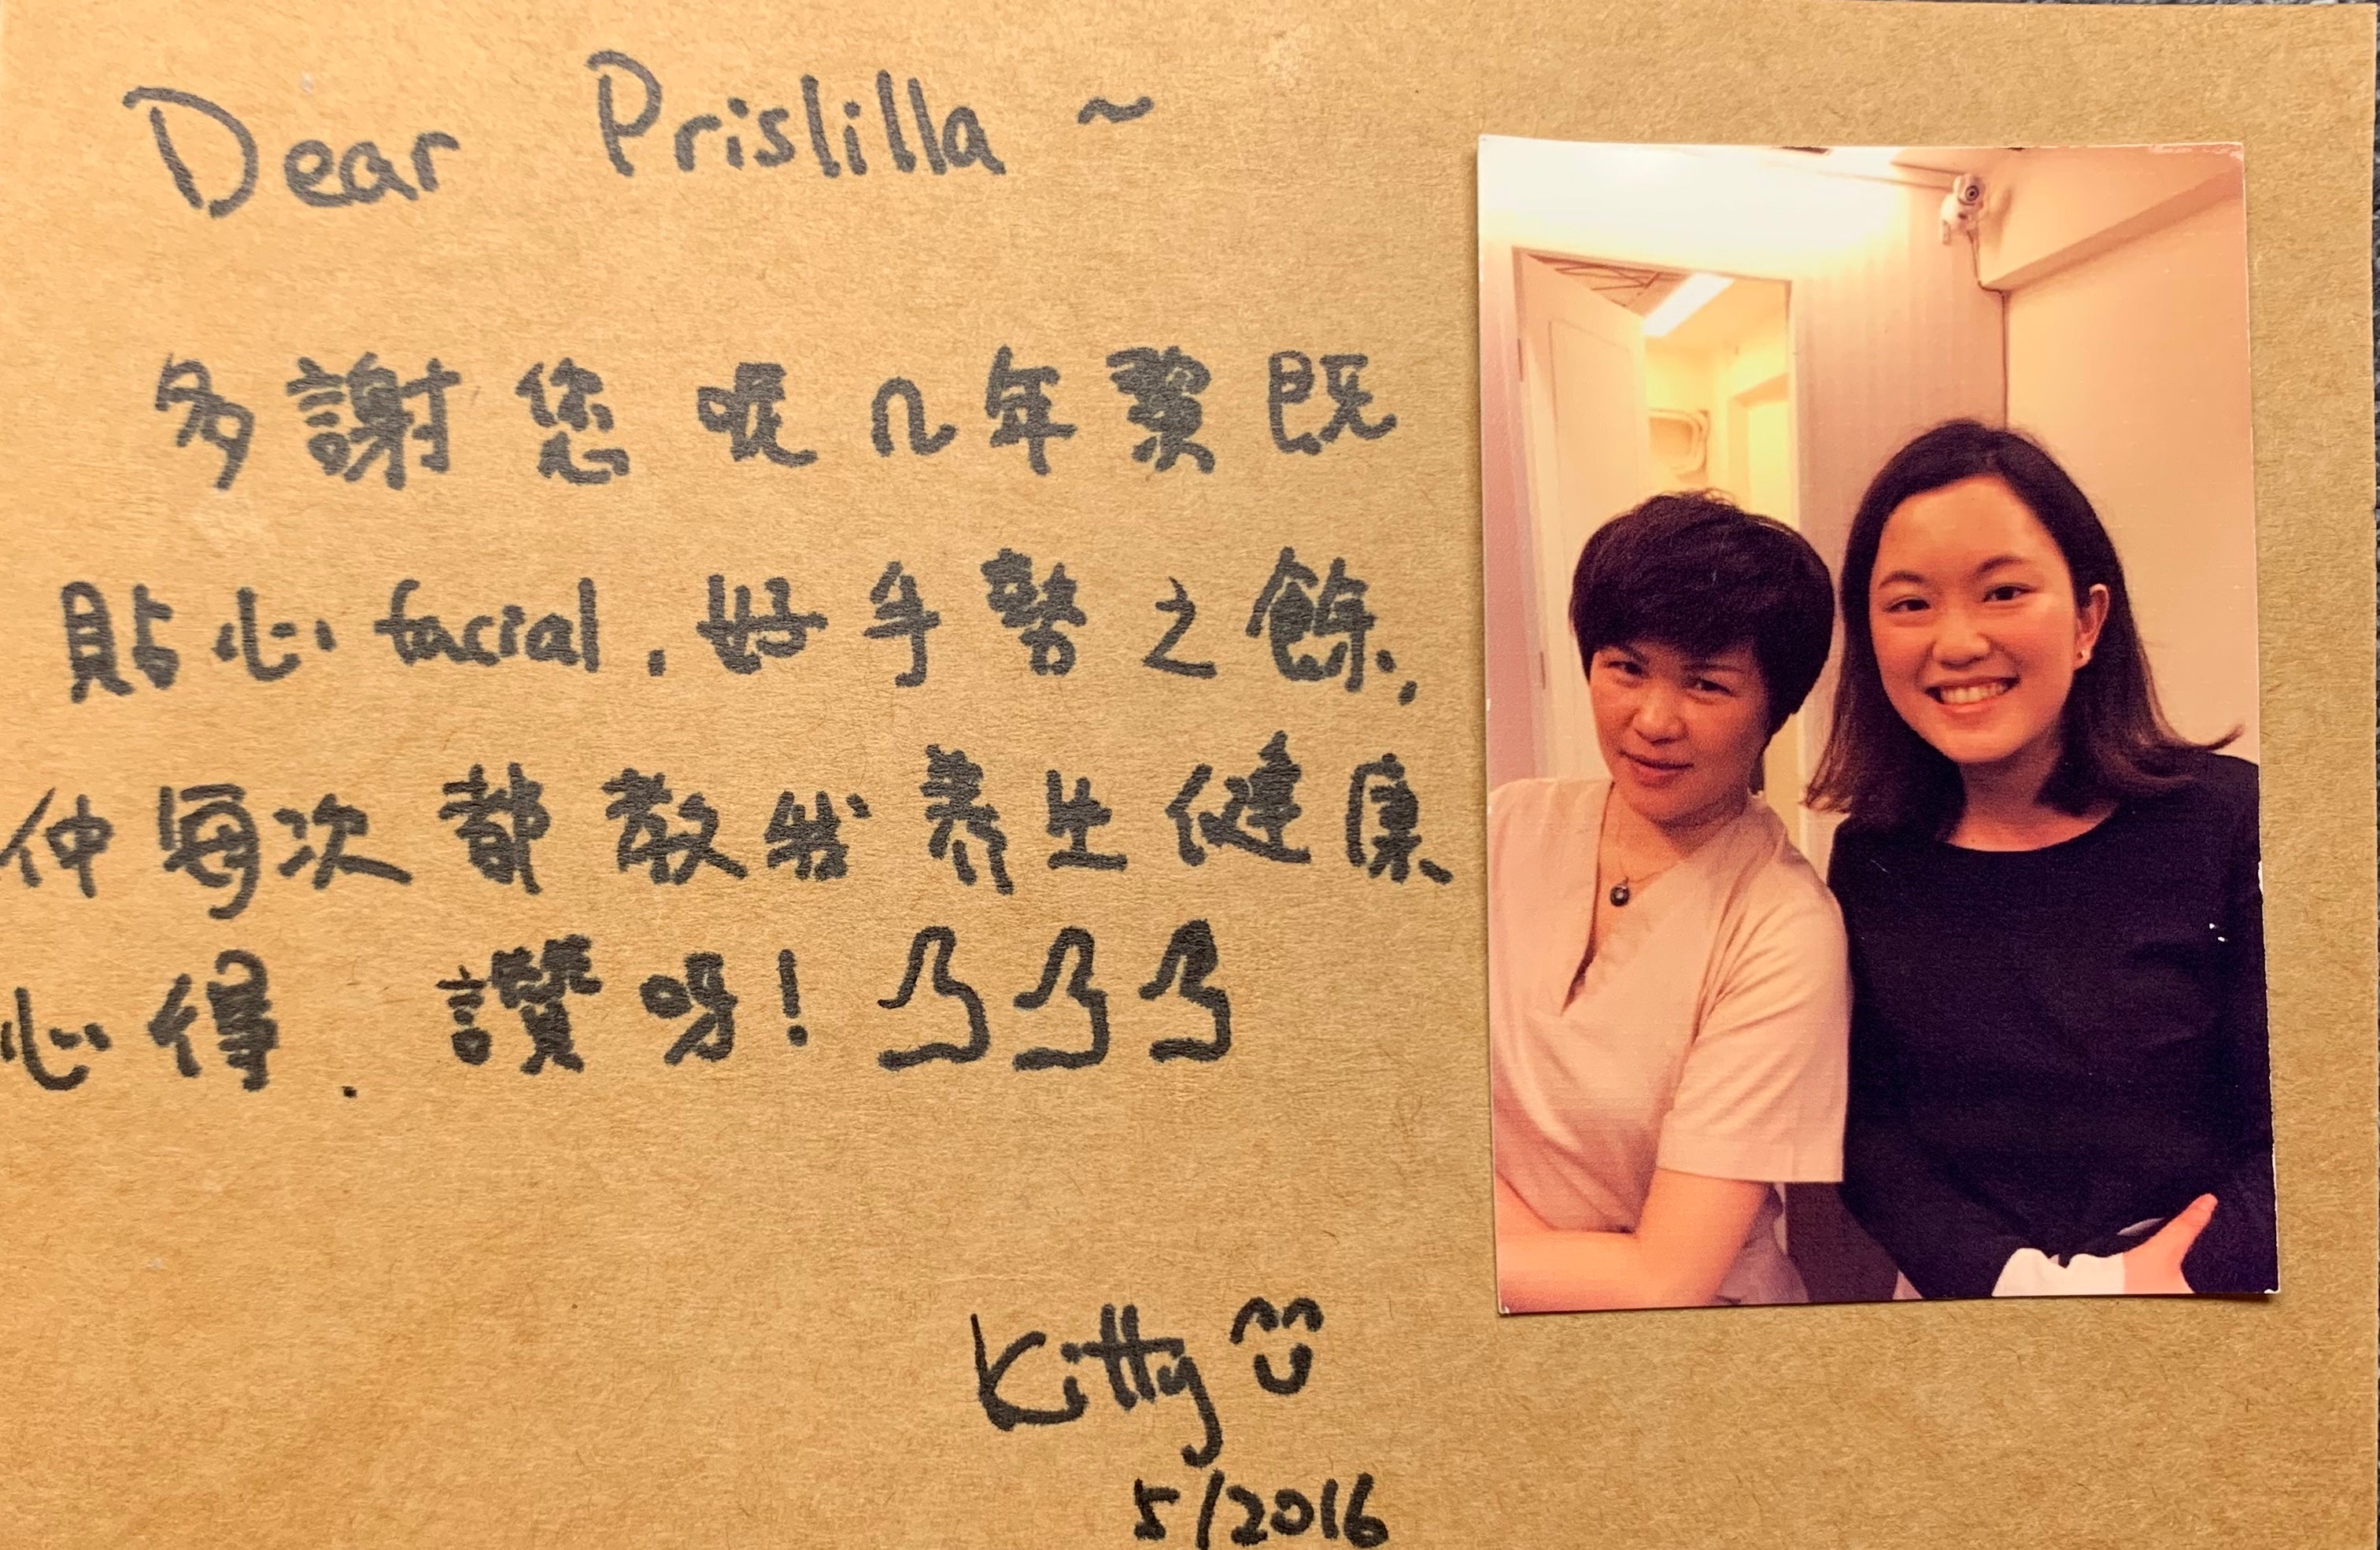 Dear Prislilla ~
多謝您呢几年黎既
貼心 facial. 好手勢之餘,
仲每次都教我养生健康
心得. 讚呀!
Kitty
5/2016